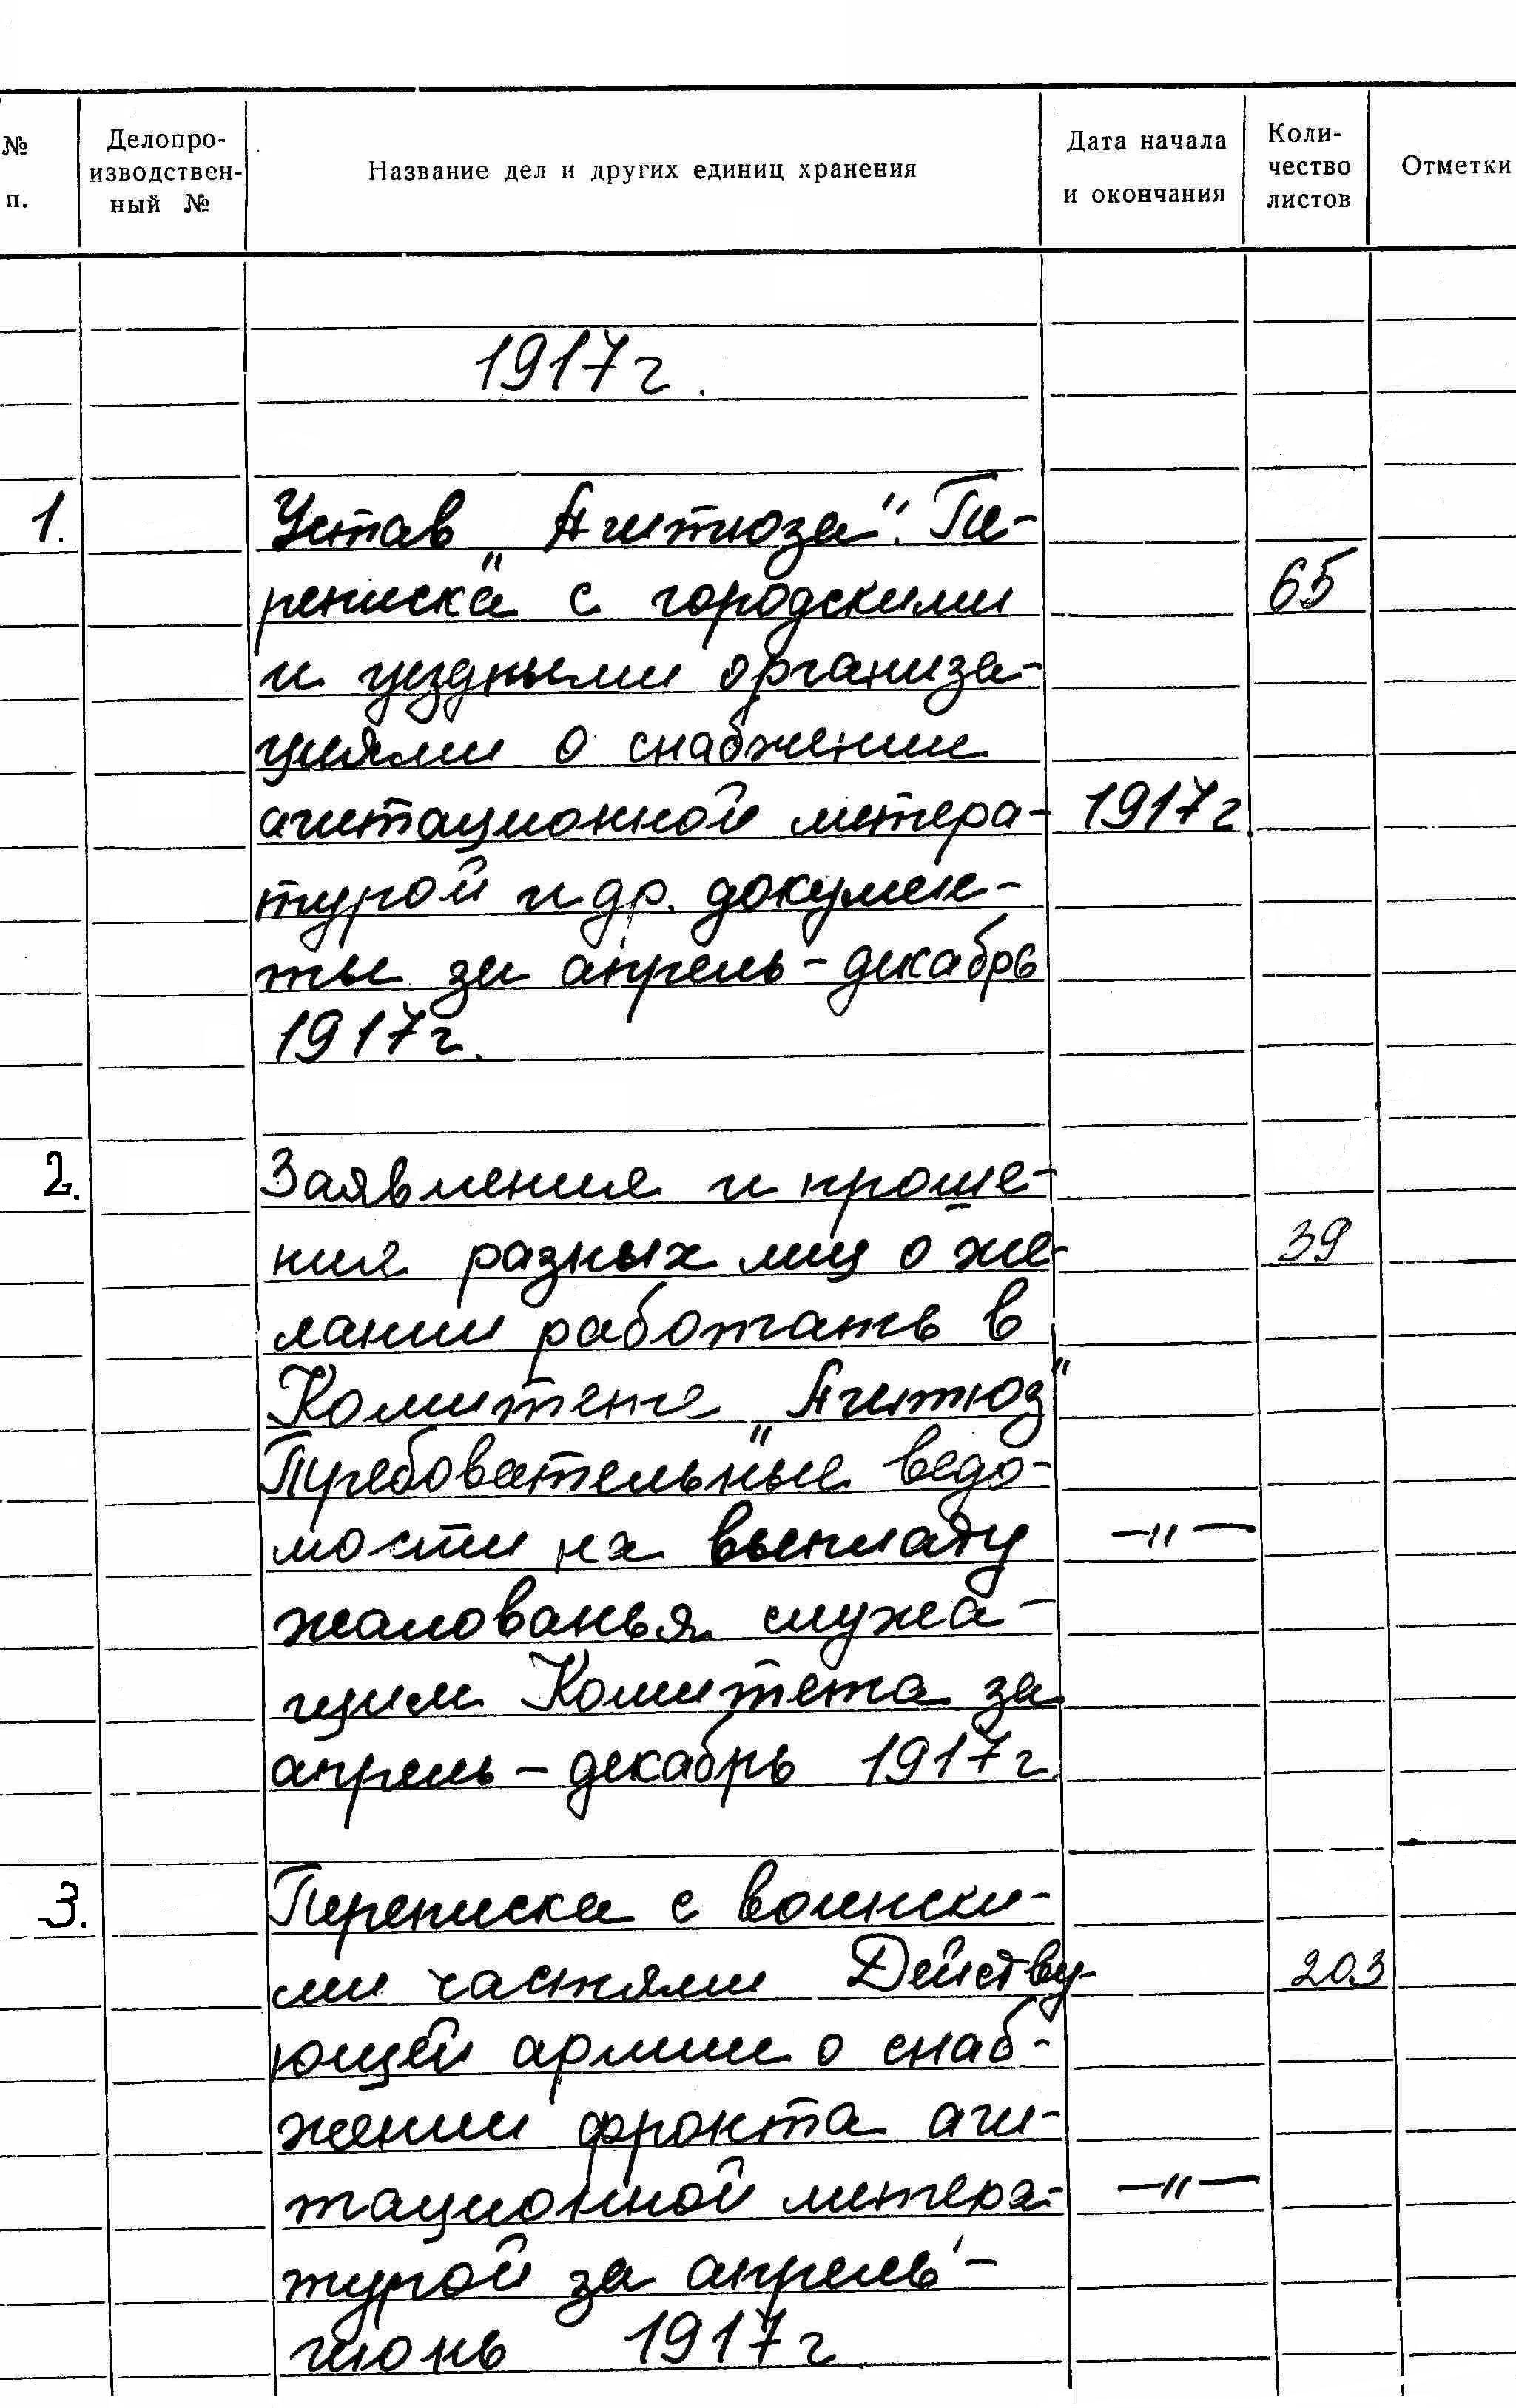 № п.
Делопро-
изводствен-
ный №
Название дел и других единиц хранения
Дата начала
и окончания
Коли-
чество
листов
Отметки
1917 г.
1. Устав „Агитюза". Пе-
реписка с городскими 65
и уездными организа-
циями о снабжении
агитационной литера- 1917 г.
турой и др. докумен-
ты за апрель - декабрь
1917 г.
2. Заявления и проше-
ния разных лиц о же- 39
лании работать в
Комитете „Агитюз"
Требовательные ведо-
мости на выплату —"—
жалованья служа-
щим Комитета за
апрель - декабрь 1917 г.
3. Переписка с воински-
ми частями Действу- 203
ющей армии о снаб-
жении фронта аги-
тационной литера- —"—
турой за апрель -
июнь 1917 г.